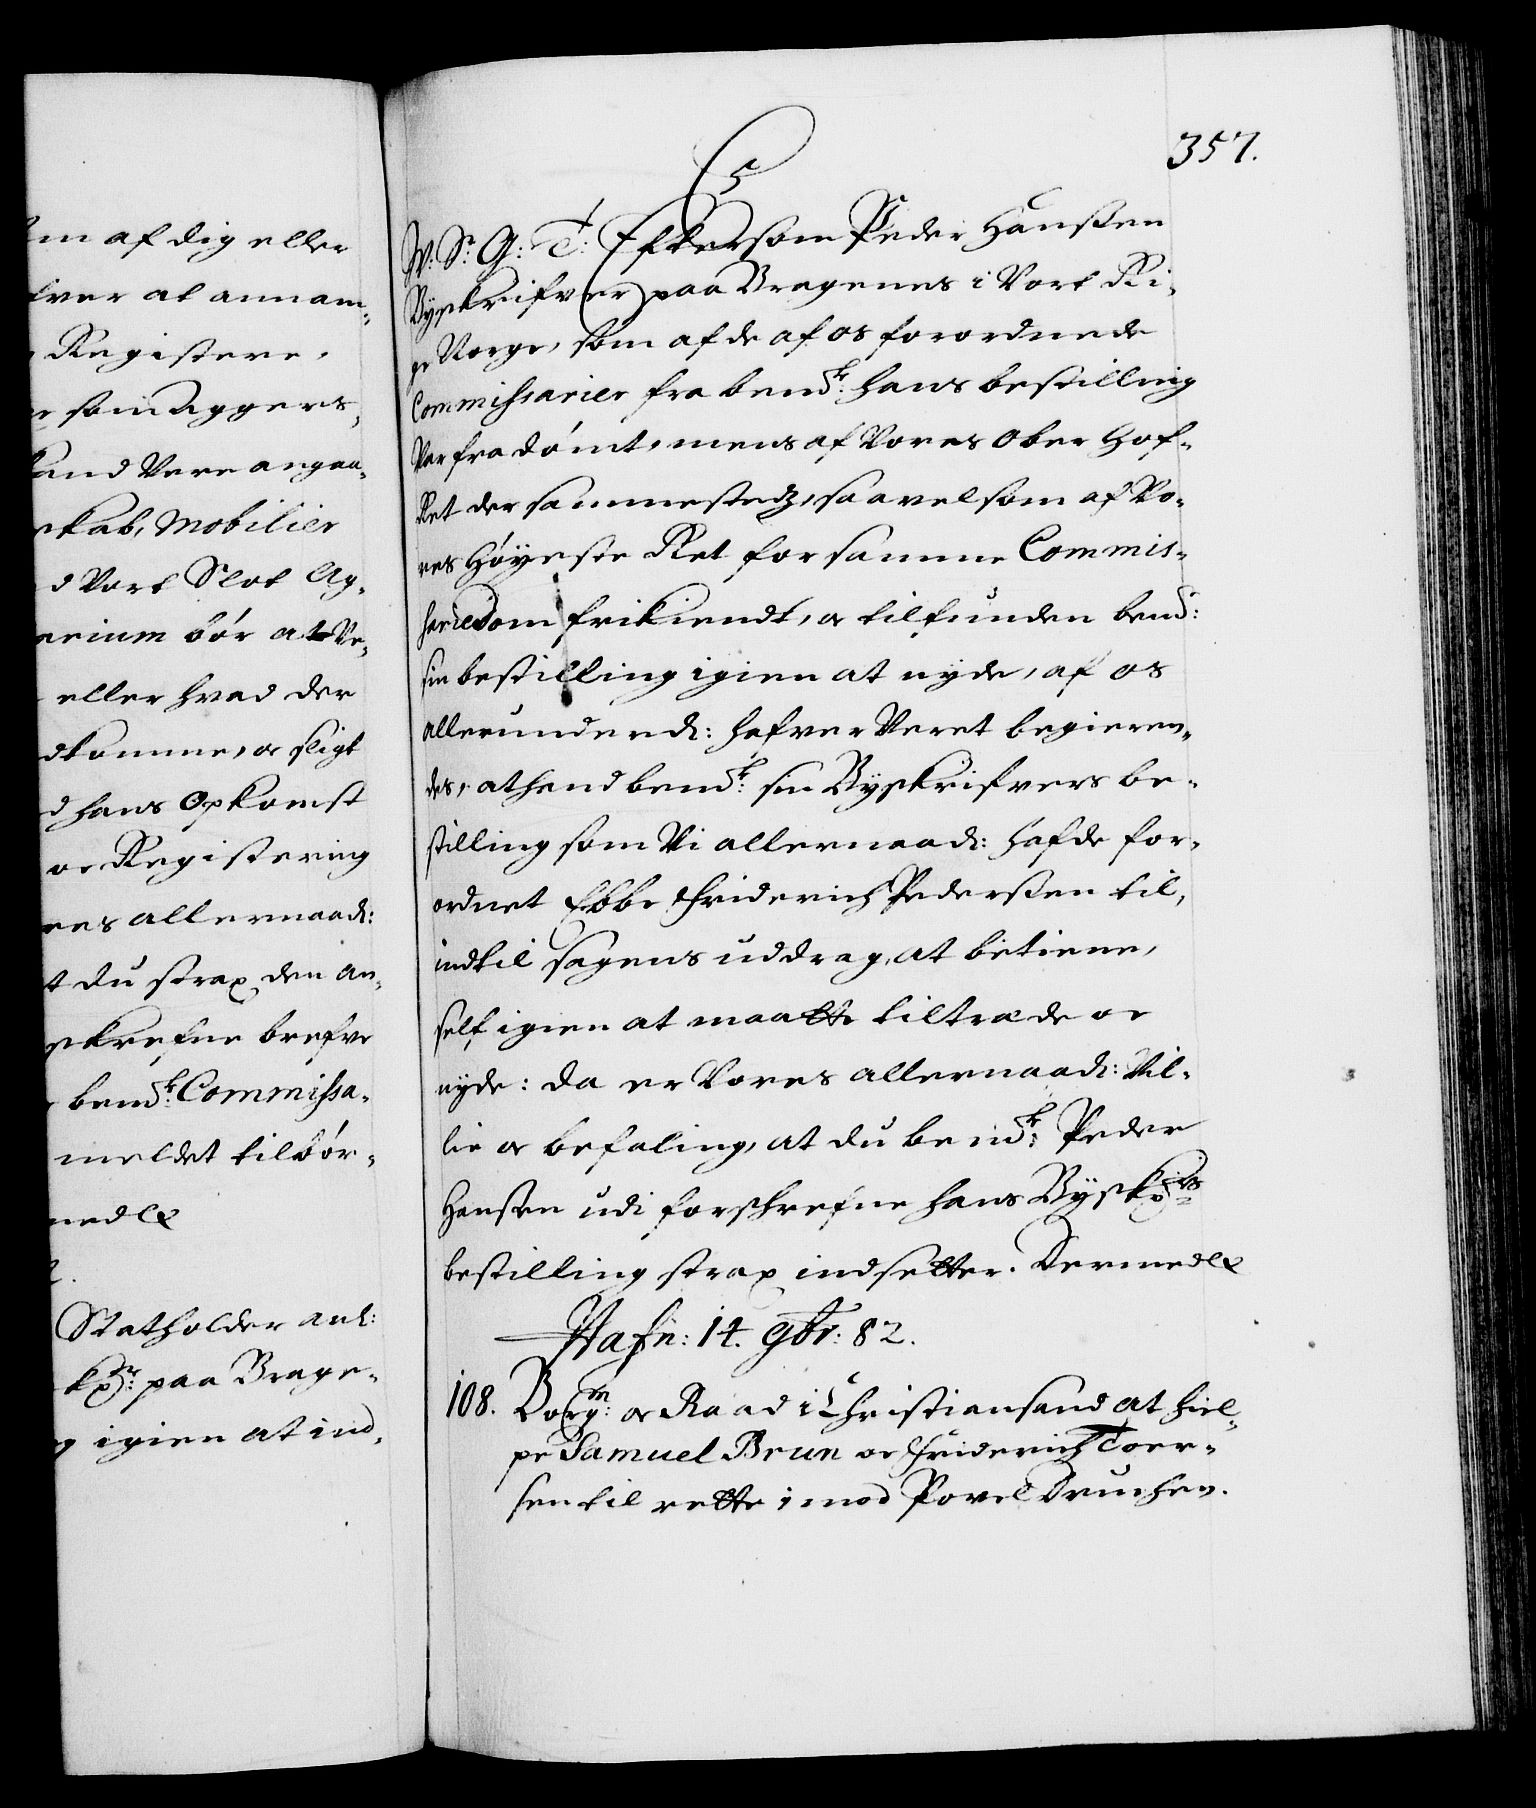 m af dig eller
fver at annam-
Registere,
r som Aggers-
kand Vere angaa-
skab, Mobilier
d Vort Slot Ag-
arium bör at Ve-
eller hvad der
dkomme, oc sligt
d hans Opkomst
oc Registering
res allernaad:
t du strax den an-
skrefne brefve
bemd.te Commissa-
meldet tilbör-
medlx
2.
Statholder anl:
kr: paa Brage-
g igien at ind-
357.
C5
W: S: G: T: Eftersom Peder Hanssen
Byskrifver paa Bragenes i Vort Ri-
ge Norge, som af de af os forordnede
Commissarier fra bemd.te hans bestilling
Var fra dömt, mens af Vores Ober Hof-
Ret der sammestedz, saavelsom af Vo-
res Höyeste Ret for samme Commis-
sariedom frikiendt, oc tilfunden bemd:
sin bestilling igien at nyde, af os
allerunderd: hafver Veret begieren-
des, at hand bemd.te sin Byskrifvers be-
stilling som Vi allernaad: hafde for-
ordnet Ebbe Friderich Pederssen til,
indtil sagens uddrag, at betiene,
self igien at maatte tiltræde oc
nyde: da er Vores allernaad: Vil-
lie oc befaling, at du bemd.te Peder
Hanssen udi forschrefne hans Byskr.s
bestilling strax indsetter. Dermedlx
Hafn: 14. 9br: 82.
108. Borgm: oc Raad i Christiansand at hiel-
pe Samuel Brun oc Friderich Toer-
sen til rette imod Povel Druchen.